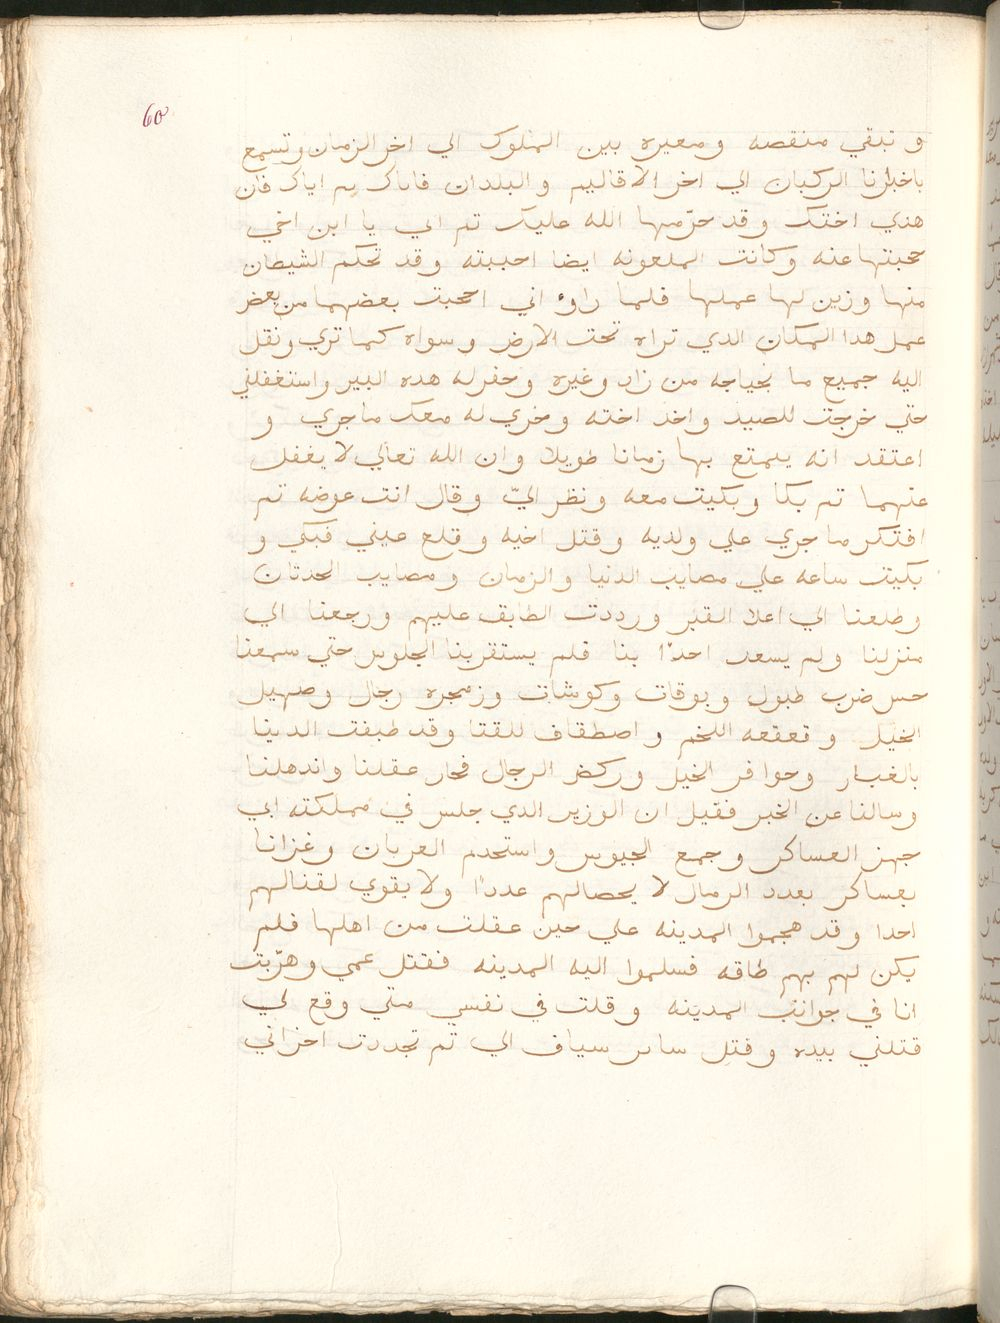 60
و تبقي منقصه ومعيره بين الملوك الي اخر الزمان وتسمع
باخبارنا الركبان الي اخر الاقاليم والبلدان فاياك ثم اياك فان
هذي اختك وقد حرّمها الله عليك ثم اني يا ابن اخي
حجبتها عنه وكانت الملعونه ايضا احببته وقد تحكم الشيطان
منها وزين لها عملها فلما راوء اني احجبت بعضهما من بعض
عمل هدا المكان الدي تراه تحت الارض وسواه كما تري ونقل
اليه جميع ما يحياجه من زاد وغيره وحفر له هده البير واستغفلني
حتي خرجت للصيد واخد اخته وجري له معك ما جري و
اعتقد انه يتمتع بها زمانا طويلا وان الله تعالي لا يغفل
عنهما تم بكا وبكيت معه ونظر اليّ وقال انت عوضه تم
افتكر ما جري علي ولديه وقتل اخيه وقلع عيني فبكي و
بكيت ساعه علي مصايب الدنيا والزمان ومصايب الحدتان
وطلعنا الي اعلا القبر ورددت الطابق عليهم ورجعنا الي
منزلنا ولم يسعد احدًا بنا فلم يستقر بنا الجلوس حتي سمعنا
حس ضرب طبول وبوقات وكوشات وزمجره رجال وصهيل
الخيل وقعقعه اللخم واصطقاف للقتا وقد طبقت الدنيا
بالغبار وحوافر الخيل وركض الرجال فحار عقلنا واندهلنا
وسالنا عن الخبر فقيل ان الوزير الدي جلس في مملكته ابي
جهز العساكر وجمع الجيوس واستحدم العربان وغزانا
بعساكر بعدد الرمال لا يحصالهم عددًا ولا يقوي لقتالهم
احدا وقد هجموا المدينه علي حين عقلت من اهلها فلم
يكن لهم بهم طاقه فسلموا اليه المدينه فقتل عمي وهرّبت
انا في جوانب المدينه وقلت في نفسي متي وقع لي
قتلني بيده وقتل سياف ابي تم تجددت احزاني